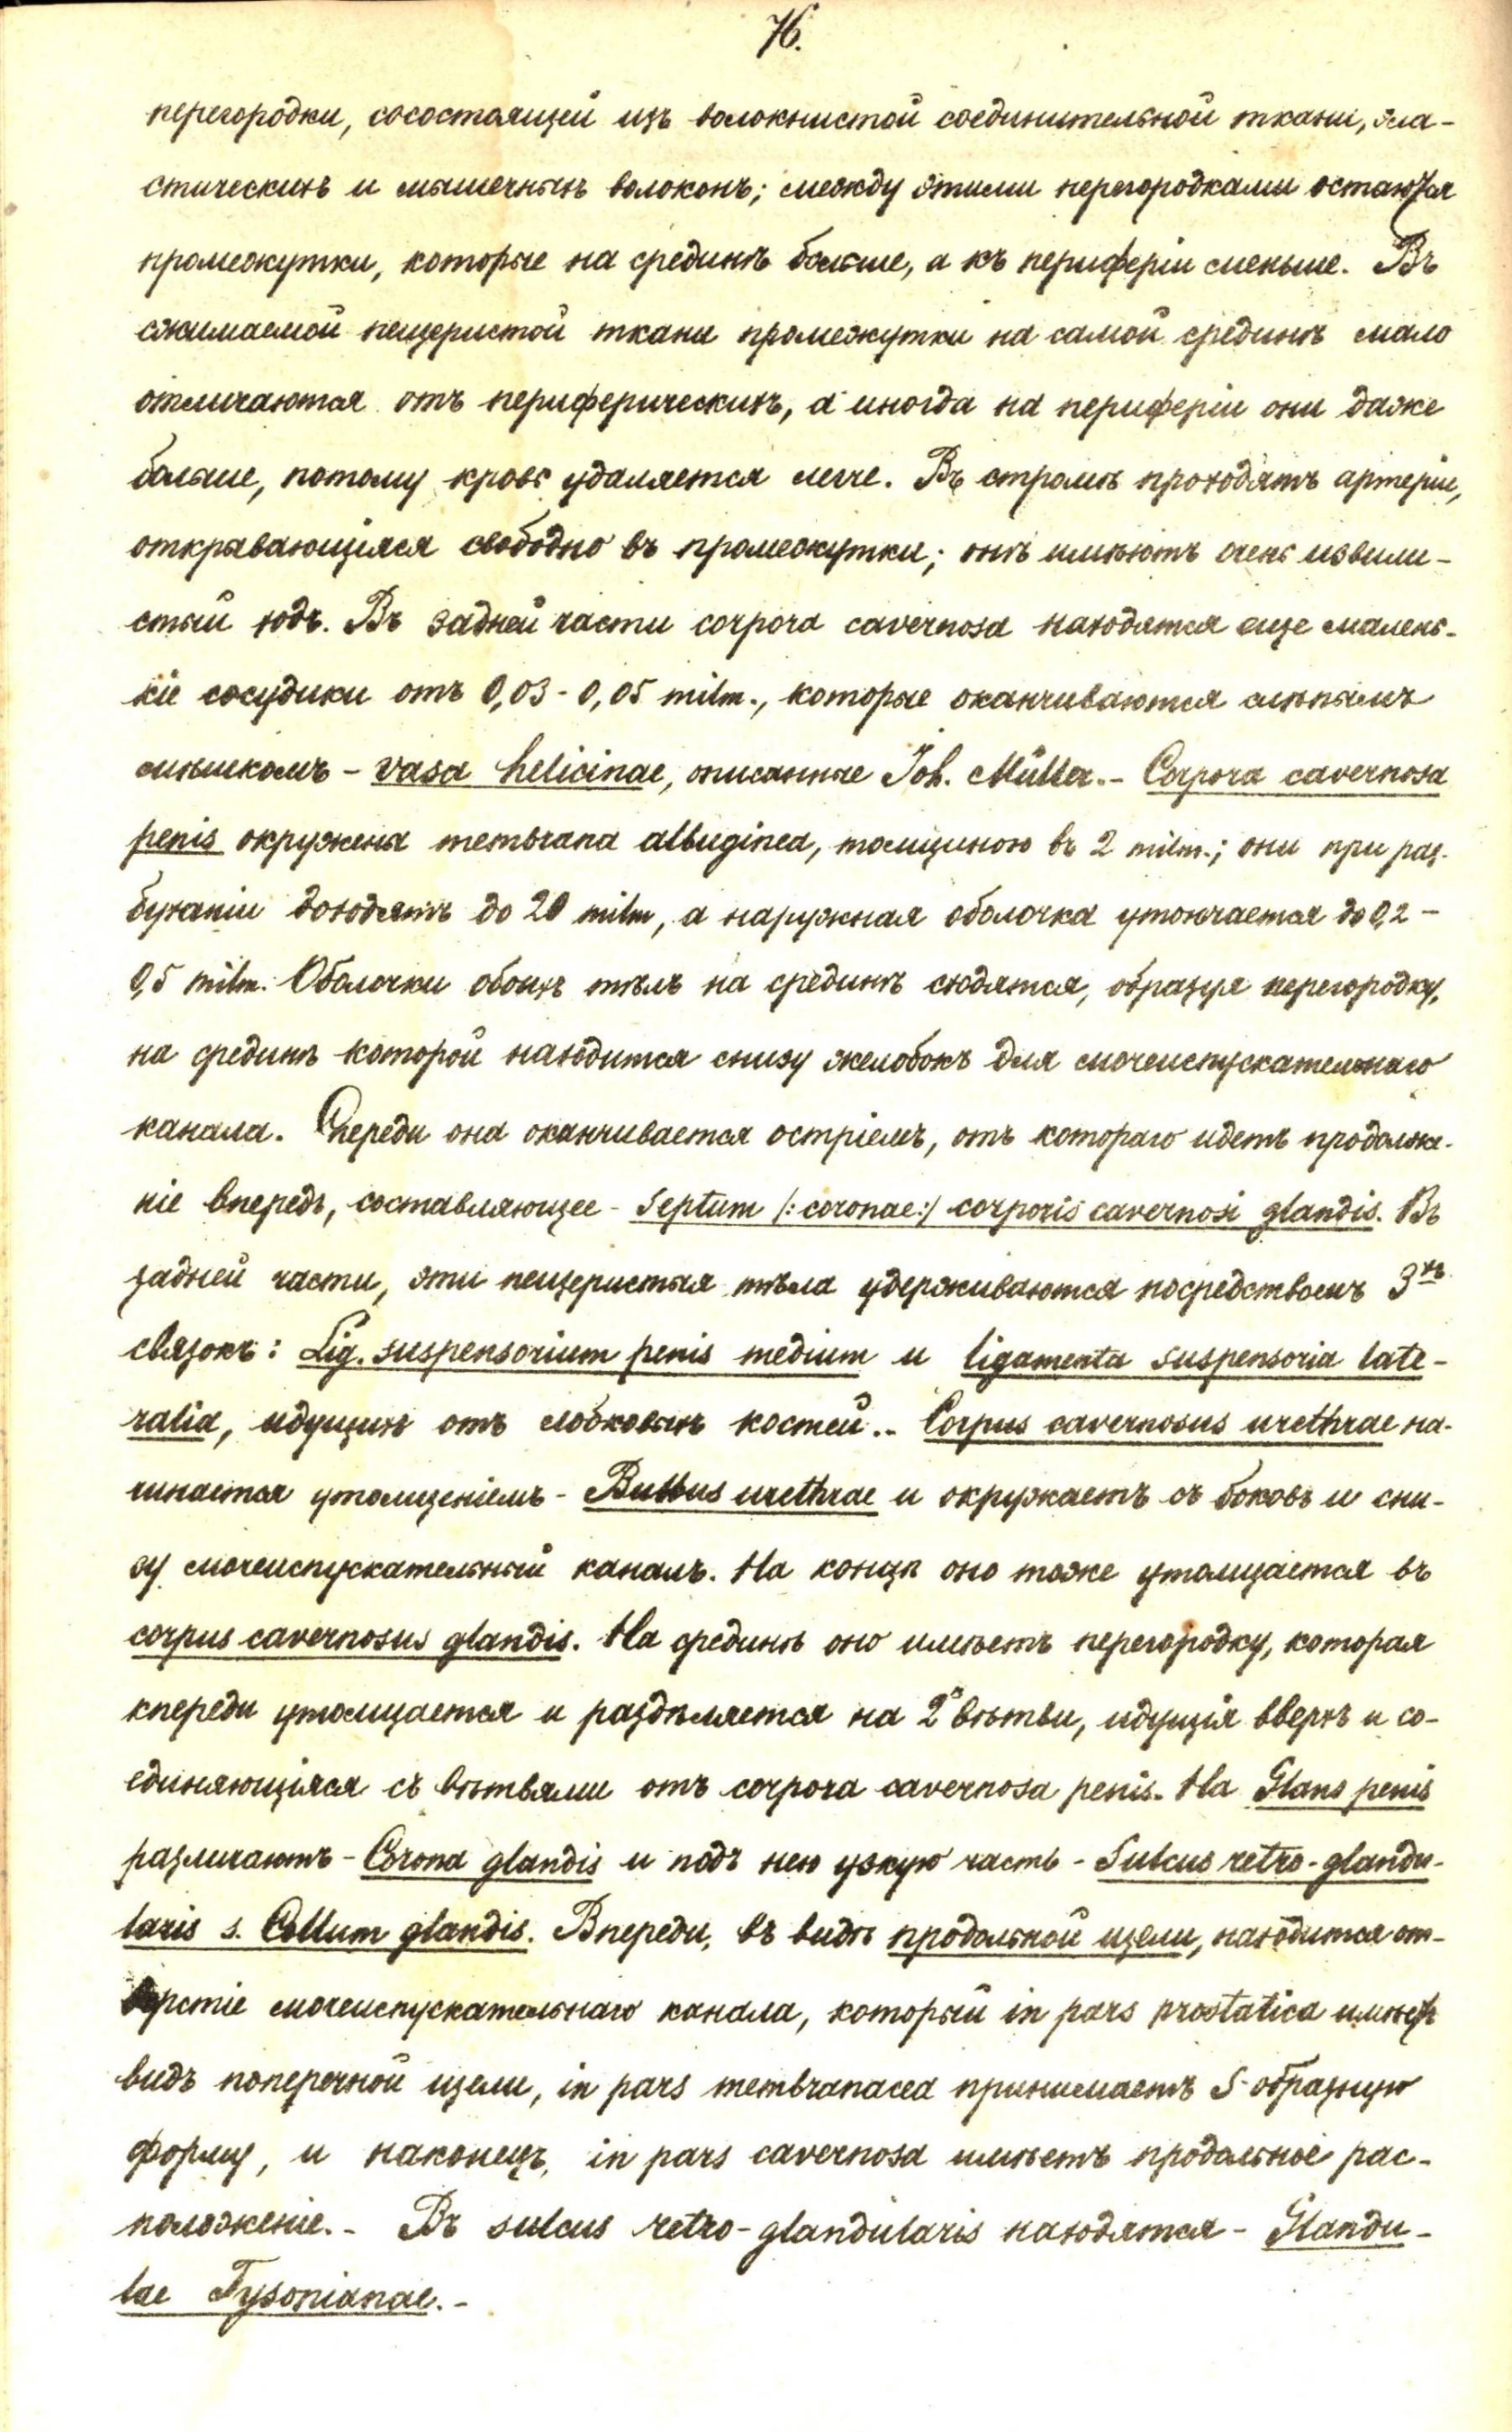 76.
перегородки, сосостоящей изъ волокнистой соединительной ткани, эла-
стическихъ и мышечныхъ волоконъ; между этими перегородками остаются
промежутки, которые на срединѣ больше, а къ периферіи меньше. Въ
сжимаемой пещеристой ткани промежутки на самой срединѣ мало
отличаются отъ периферическихъ, а иногда на периферіи они даже
больше, потому кровь удаляется легче. Въ стромѣ проходятъ артеріи,
открывающіяся свободно въ промежутки; онѣ имѣютъ очень извили-
стый ходъ. Въ задней части corpora cavernosa находятся еще малень-
кіе сосудики отъ 0,03 - 0,05 milm., которые оканчиваются слѣпымъ
мѣшкомъ - vasa helicinae, описанные Joh. Müller. - Corpora cavernosa
penis окружены membrana albuginea, толщиною въ 2 milm.; они при раз-
буханіи доходятъ до 20 milm, а наружная оболочка утончается до 0,2 -
0,5 milm. Оболочки обоихъ тѣлъ на срединѣ сходятся, образуя перегородку,
на срединѣ которой находится снизу желобокъ для мочеиспускательнаго
канала. Спереди она оканчивается остріемъ, отъ котораго идетъ продолже-
ніе впередъ, составляющее - Septum /: coronae :/ corporis cavernosi glandis. Въ
задней части, эти пещеристыя тѣла удерживаются посредствомъ 3хъ
связокъ: Lig. suspensorium penis medium и ligamenta suspensoria late-
ralia, идущихъ отъ лобковыхъ костей.- Corpus cavernosus urethrae на-
чинается утолщеніемъ - Bulbus urethrae и окружаетъ съ боковъ и сни-
зу мочеиспускательный каналъ. На концѣ оно тоже утолщается въ
corpus cavernosus glandis. На срединѣ оно имѣетъ перегородку, которая
кпереди утолщается и раздѣляется на 2 вѣтви, идущія вверхъ и со-
единяющіяся съ вѣтвями отъ corpora cavernosa penis. На Glans penis
различаютъ - Corona glandis и подъ нею узкую часть - Sulcus retro-glandu-
laris s. Collum glandis. Впереди, въ видѣ продольной щели, находится от-
верстіе мочеиспускательнаго канала, который in pars prostatica имѣетъ
видъ поперечной щели, in pars membranacea принимаетъ S-образную
форму, и наконецъ, in pars cavernosa имѣетъ продольное рас-
положеніе. - Въ sulcus retro-glandularis находятся - Glandu-
lae Tysonianae. -